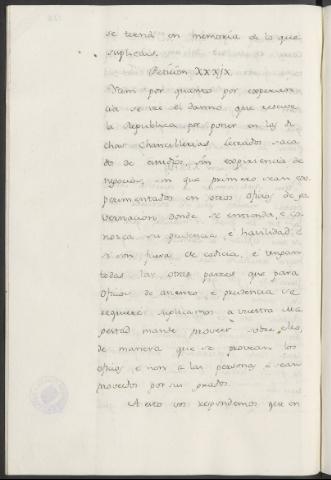 se terná en memoria de lo que
suplicais.
Petición XXXIX
Iten por quanto por experien
cia se ve el danno que rescive
la Republica por poner en las di
chas Chancillerias letrados saca
dos de estudios, sin experiencia de
negocios, sin que primero sean ex
perimentados en otros oficios de go
vernacion donde se entienda, e co
nozca su prudencia, e habilidad, e
si son fuera de codicia, e tengan
todas las otras partes que para
oficios de asiento e prudencia se
requiere suplicamos a vuestra Ma
gestad mande proveer sobre ello,
de manera que se provean los
oficios e non a las personas e sean
proveidos por sus grados.
A esto vos respondemos que en